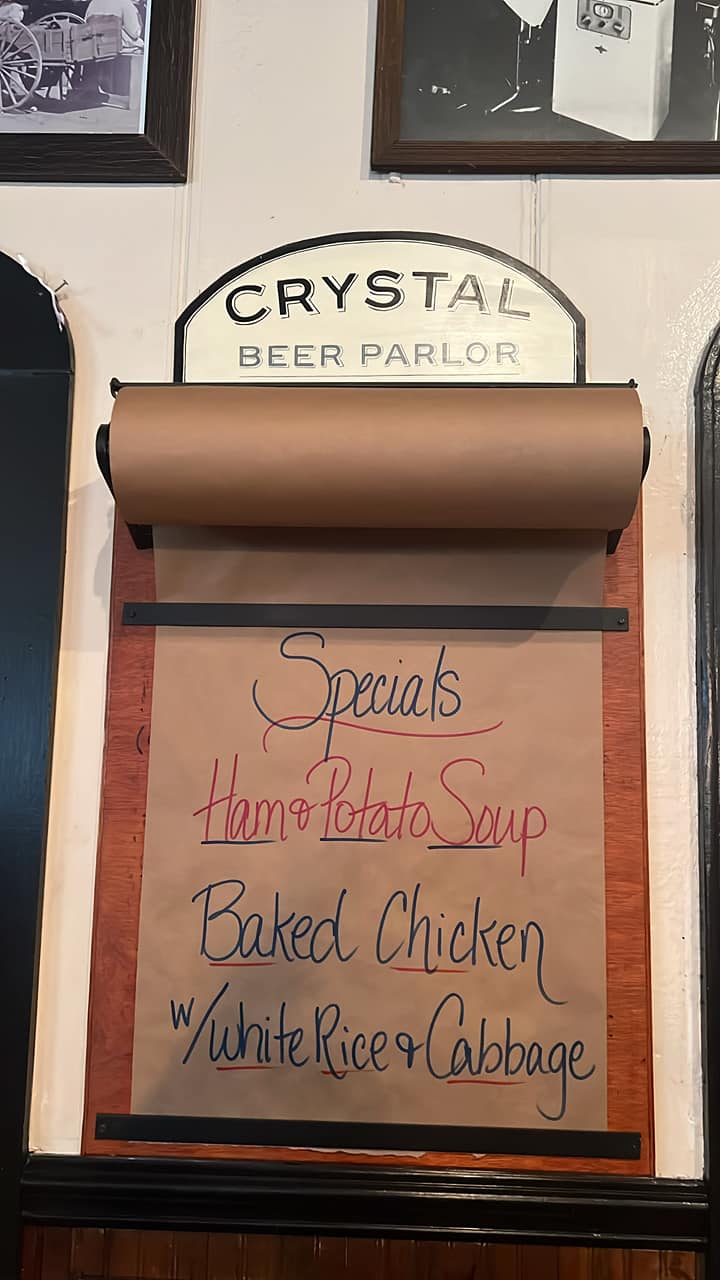 CRYSTAL
BEER PARLOR
Specials
Ham & Potato Soup
Baked Chicken
w/white Rice & Cabbage